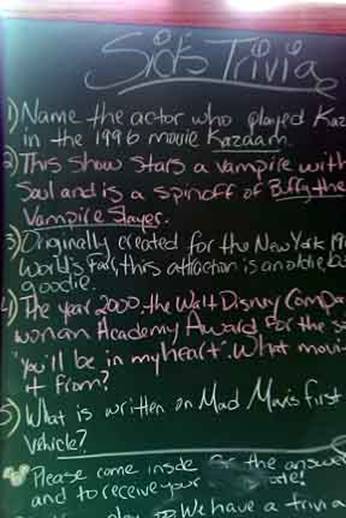 Sid's Trivia
1) Name the actor who played Kaz
in the 1996 movie Kazaam.
2) This show stars a vampire with
Soul and is a spinoff of Buffy the
Vampire Slayer.
3) Originally created for the New York 19
World's Fair, this attraction is an oldie, bu
goodie.
4) The year 2000, the Walt Disney Compa
won an Academy Award for the s
"You'll be in my heart". What movi
it from?
5) What is written on Mad Max's first
vehicle?
Please come inside for the answe
and to receive your
We have a trivia